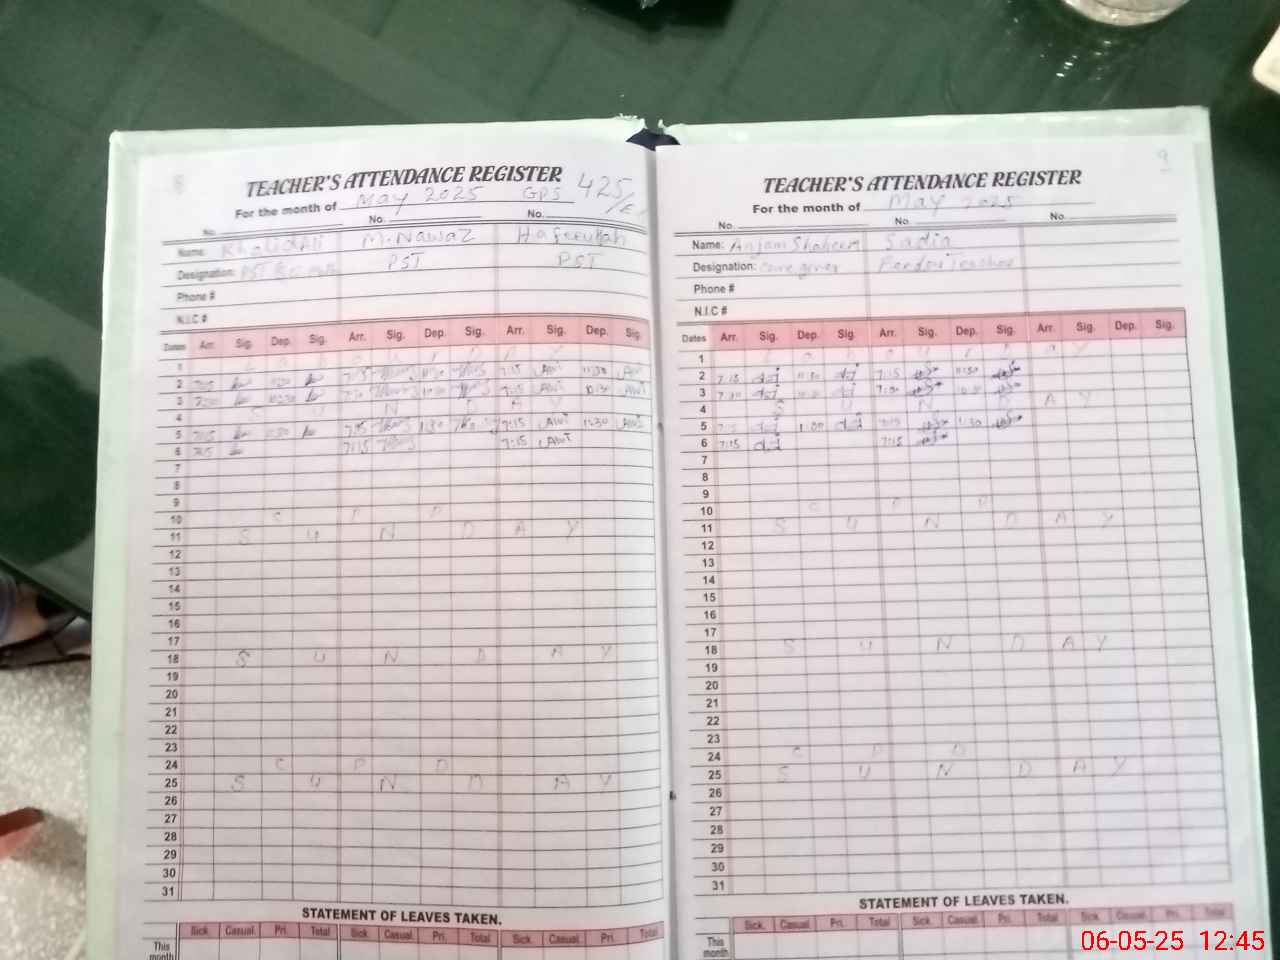 8
TEACHER'S ATTENDANCE REGISTER
For the month of May 2025 GPS 425/E
No. No. No.
Name: Khalid Ali M. Nawaz Hafeezullah
Designation: PST PST PST
Phone #
N.I.C #
Dates Arr. Sig. Dep. Sig. Arr. Sig. Dep. Sig. Arr. Sig. Dep. Sig.
1 L a b o u r D a y
2 7:15 11:30 7:15 11:30 7:15 11:30
3 7:30 10:30 7:30 10:30 7:15 10:30
4 S U N D A Y
5 7:15 1:30 7:15 1:30 7:15 1:30
6 7:15 7:15 7:15
7
8
9
10 C P D
11 S U N D A Y
12
13
14
15
16
17
18 S U N D A Y
19
20
21
22
23
24 C P D
25 S U N D A Y
26
27
28
29
30
31
STATEMENT OF LEAVES TAKEN.
Sick. Casual. Pri. Total Sick. Casual. Pri. Total Sick. Casual. Pri. Total
This month
9
TEACHER'S ATTENDANCE REGISTER
For the month of May 2025
No. No. No.
Name: Anjam Shaheen Sadia
Designation: Care giver Teacher
Phone #
N.I.C #
Dates Arr. Sig. Dep. Sig. Arr. Sig. Dep. Sig. Arr. Sig. Dep. Sig.
1 L a b o u r D a y
2 7:15 11:30 7:15 11:30
3 7:30 10:30 7:30 10:30
4 S U N D A Y
5 7:15 1:30 7:15 1:30
6 7:15 7:15
7
8
9
10 C P D
11 S U N D A Y
12
13
14
15
16
17
18 S U N D A Y
19
20
21
22
23
24 C P D
25 S U N D A Y
26
27
28
29
30
31
STATEMENT OF LEAVES TAKEN.
Sick. Casual. Pri. Total Sick. Casual. Pri. Total Sick. Casual. Pri. Total
This month
06-05-25 12:45